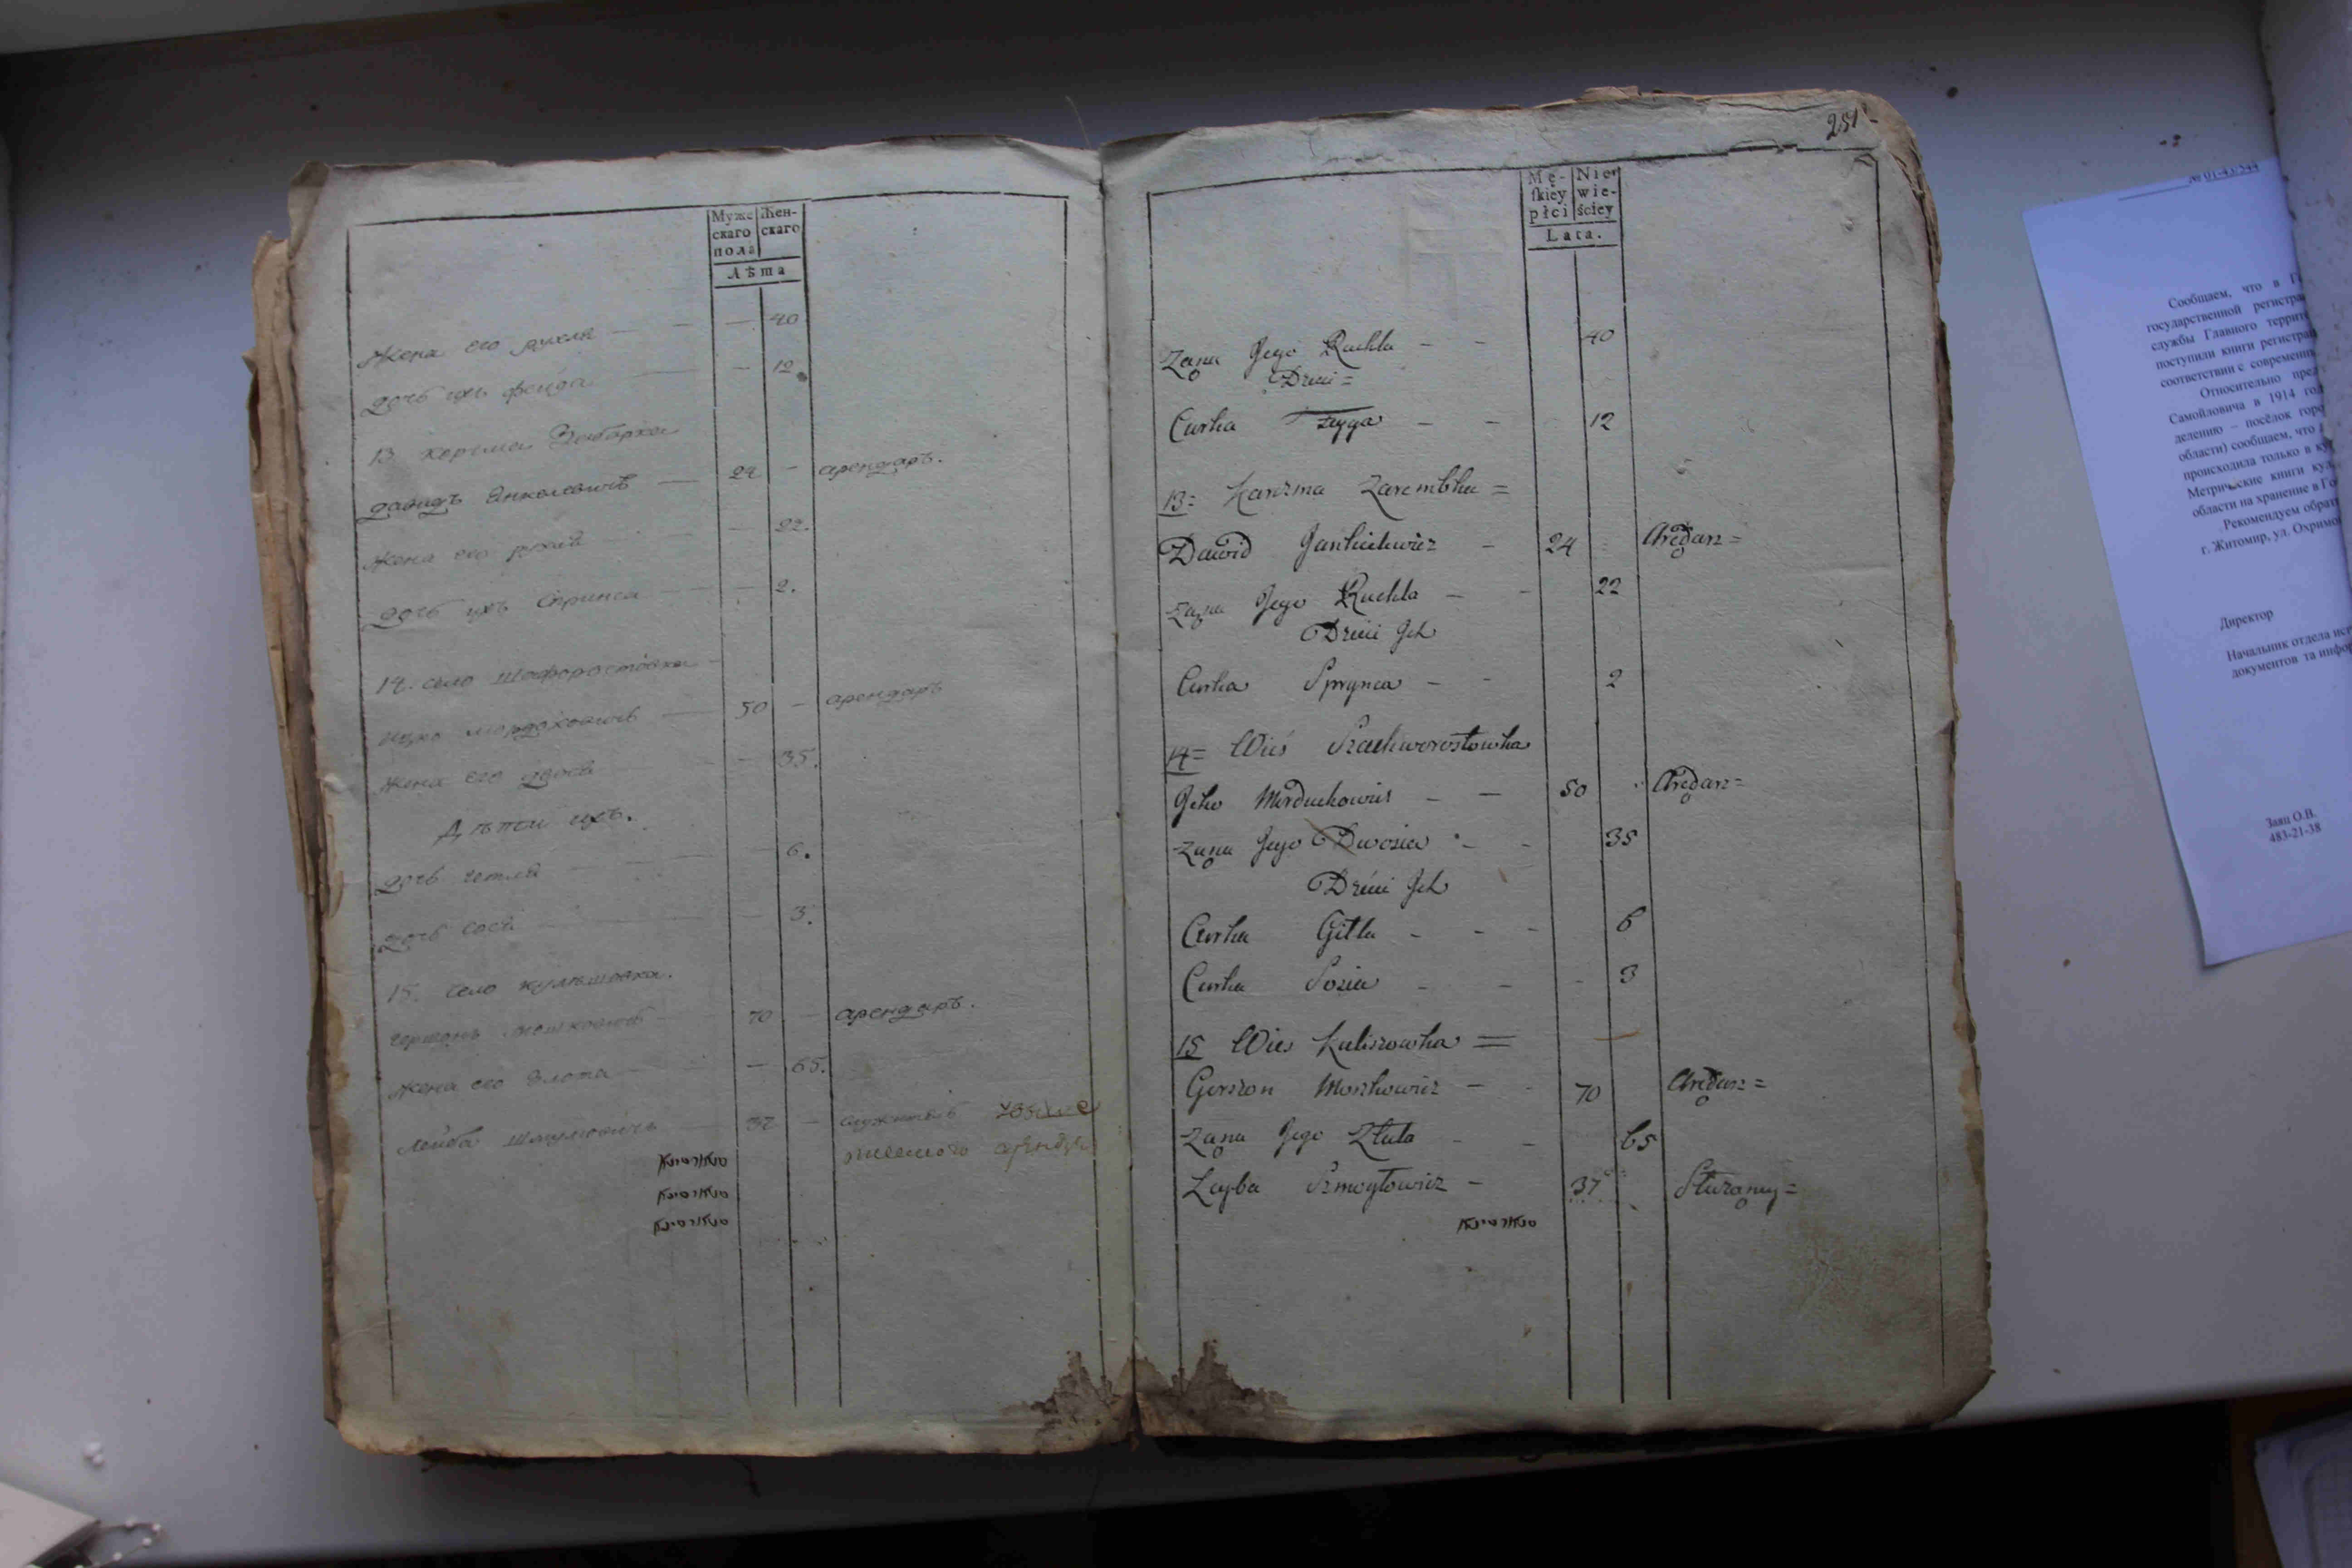 Муже
скаго
пола
Жен-
скаго
Лѣта
Жена его рухля — — — 40
дочь ихъ фейга — — 12
13 корчма Заборка
давидъ Янкелевичъ — 24 — арендаръ.
Жена его рухля — 22.
дочь ихъ Спринса — — 2.
14. село Шафоростовка —
ицко мордоховичъ — 50 — арендаръ
жена его двося — 35.
Дѣти ихъ.
дочь гитля — 6.
дочь Сося — 3.
15. село кулѣшовка.
гершонъ мошковичъ — 70 — арендаръ.
жена его Злота — — 65.
лейба шмулювичъ — 37 — служитель
арендаря
251
Mę-
skiey
płci
Nie-
wie-
ściey
Lata.
Żona Jego Ruchla - - 40
Dzieci =
Curka Feyga - - 12
13 = Karczma Zarembka =
Dawid Jankielewicz - 24 Arędarz =
Żona Jego Ruchla - - 22
Dzieci Ich
Curka Sprynca - - 2
14 = Wieś Szachworostowka
Icko Morduchowicz - - 50 Arędarz =
Żona Jego Dwosia - - 35
Dzieci Ich
Curka Gitla - - - 6
Curka Sosia - - - 3
15 Wieś Kuliszowka =
Gerszon Moszkowicz - - 70 Arędarz =
Żona Jego Złata - - 65
Leyba Szmoyłowicz - 37 Służący =
№ 01-43/544
Сообщаем, что в
государственной
службы Главного
поступили книги
соответствии с
Относительно
Самойловича в 1914
делению – посёлок
области) сообщаем, что
происходила только в
Метрические книги
области на хранение в
Рекомендуем
г. Житомир, ул.
Директор
Начальник отдела
документов та
Заяц О.В.
483-21-38